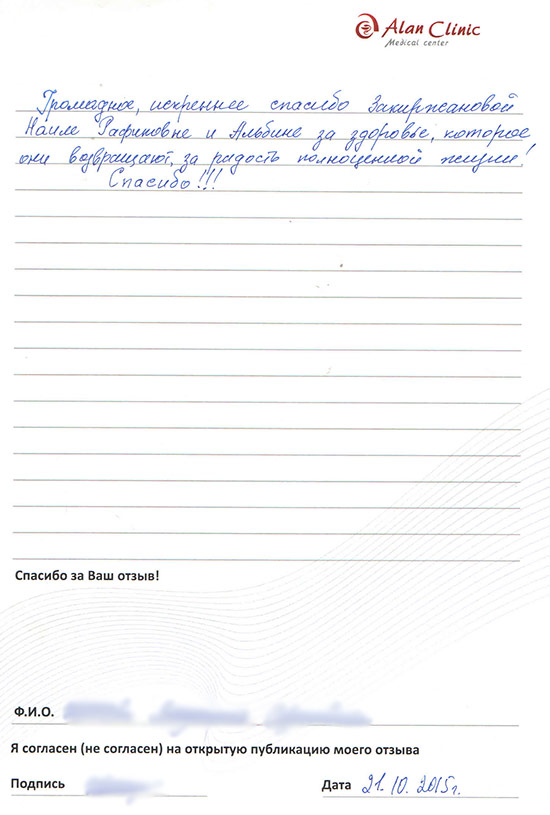 Alan Clinic
Medical center
Громадное, искреннее спасибо Закиржановой
Наиле Рафиковне и Альбине за здоровье, которое
они возвращают, за радость полноценной жизни!
Спасибо!!!
Спасибо за Ваш отзыв!
Ф.И.О.
Я согласен (не согласен) на открытую публикацию моего отзыва
Подпись Дата 21.10.2015г.